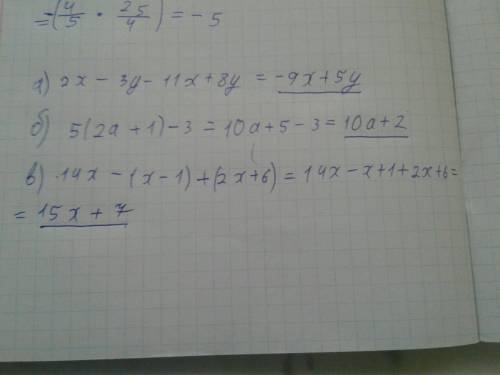 =-(4/5 · 25/4) = - 5
а) 2x - 3y - 11x + 8y = -9x + 5y
б) 5(2a + 1) - 3 = 10a + 5 - 3 = 10a + 2
в) 14x - (x - 1) + (2x + 6) = 14x - x + 1 + 2x + 6 =
= 15x + 7